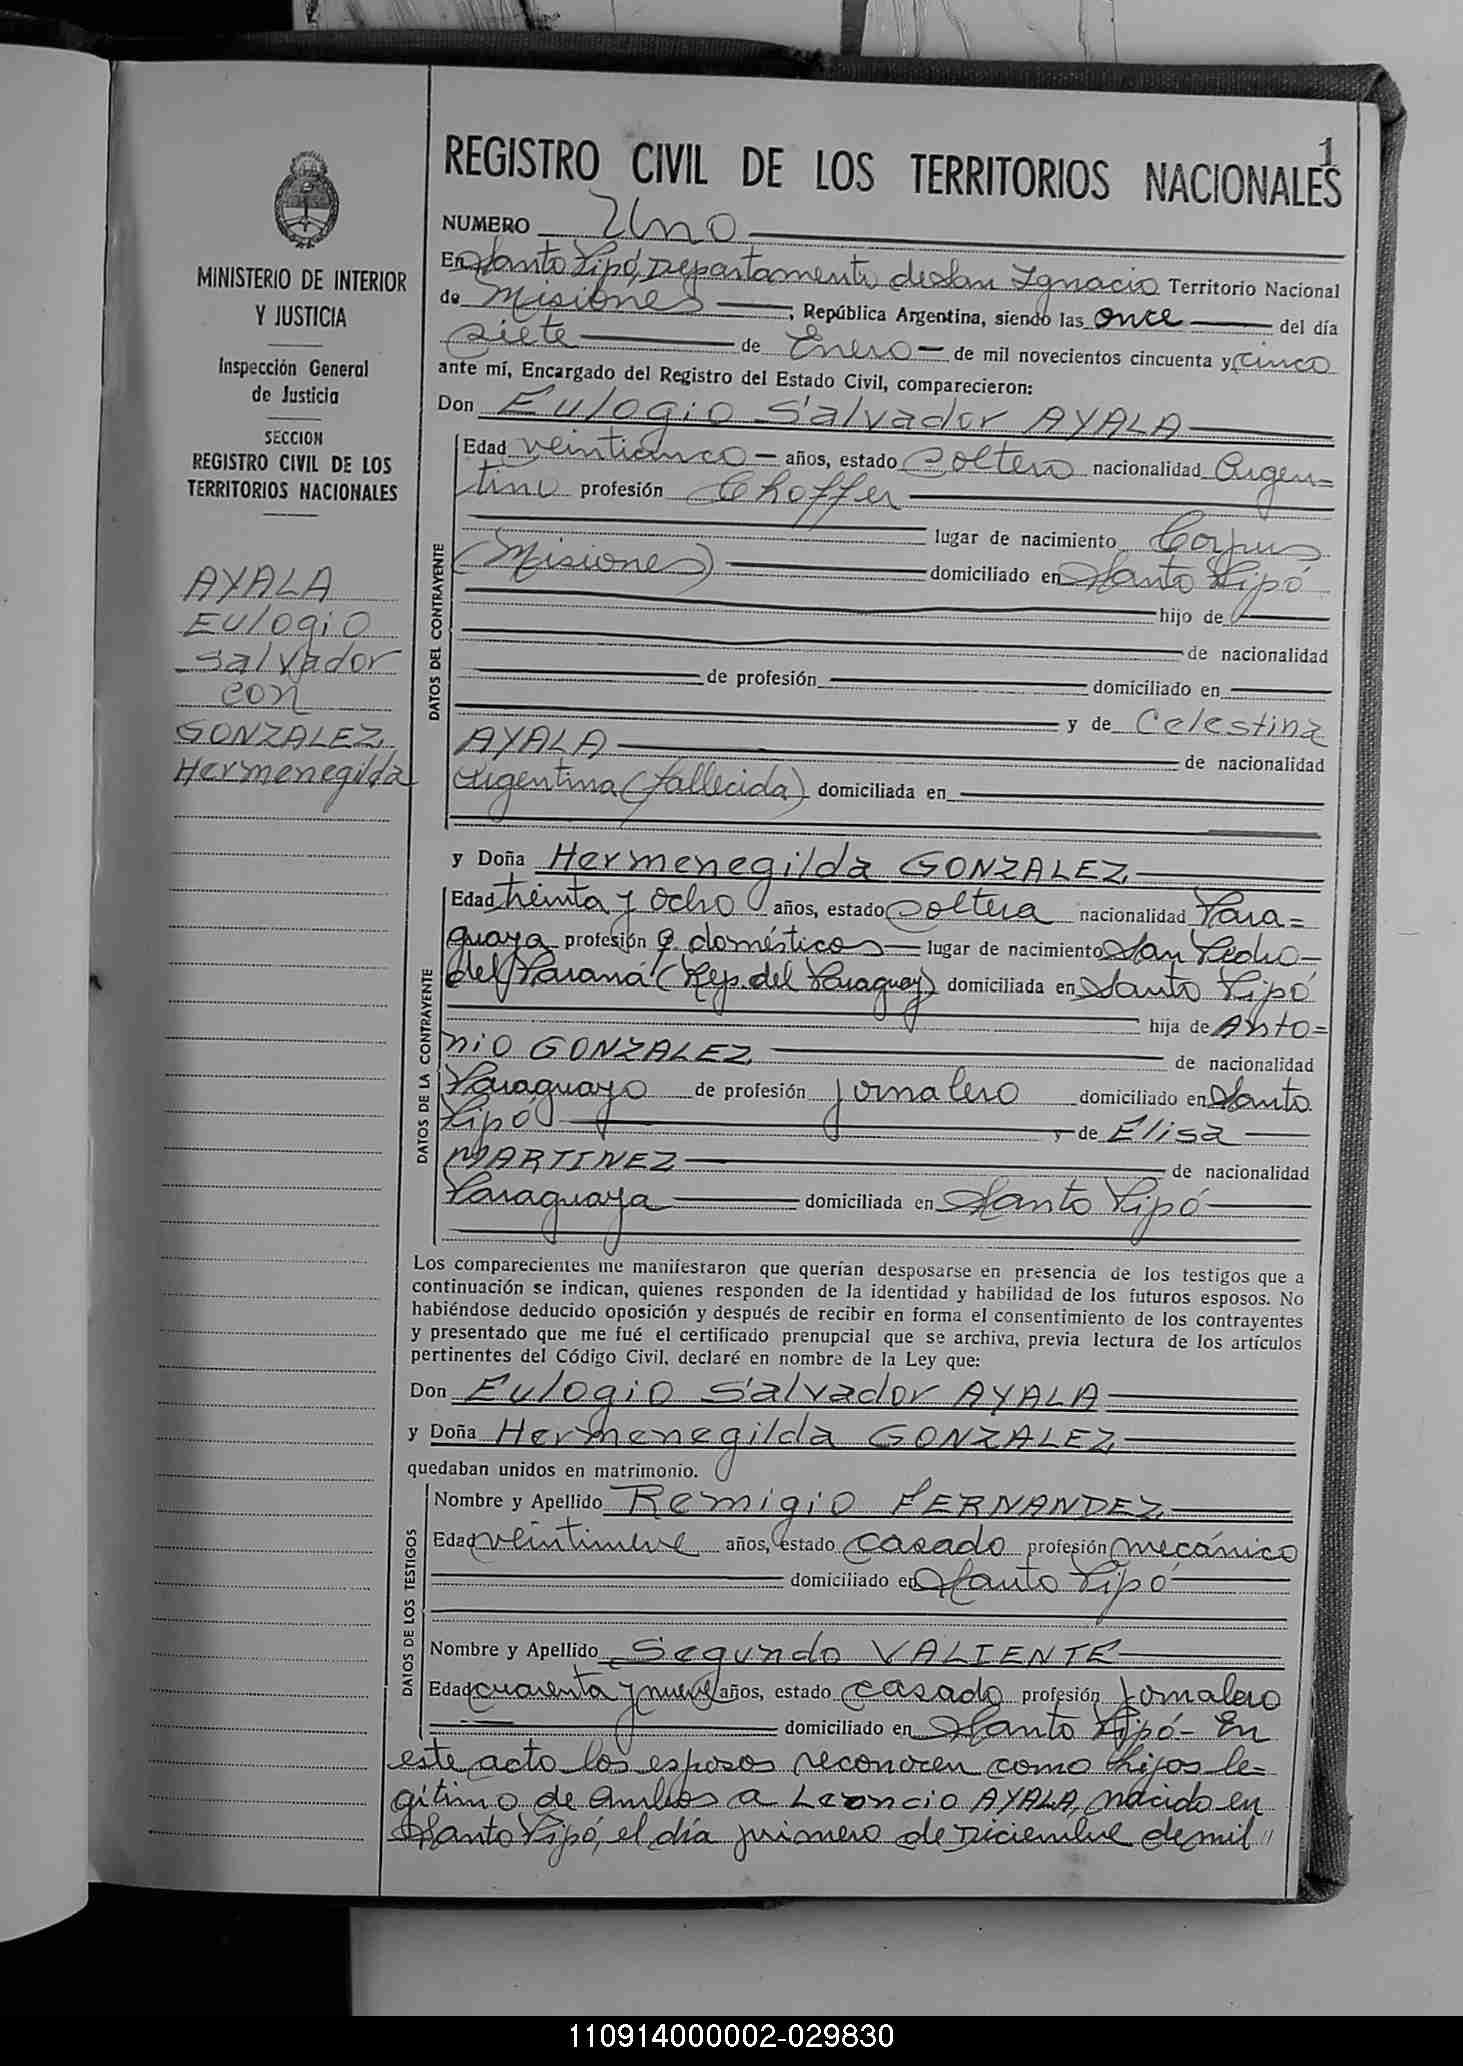 1
REGISTRO CIVIL DE LOS TERRITORIOS NACIONALES
MINISTERIO DE INTERIOR
Y JUSTICIA
Inspección General
de Justicia
SECCION
REGISTRO CIVIL DE LOS
TERRITORIOS NACIONALES
AYALA
Eulogio
Salvador
con
GONZALEZ
Hermenegilda
NUMERO Uno
En Santo Pipó, Departamento de San Ignacio Territorio Nacional
de Misiones, República Argentina, siendo las once del día
siete de Enero de mil novecientos cincuenta y cinco
ante mí, Encargado del Registro del Estado Civil, comparecieron:
Don Eulogio Salvador AYALA
DATOS DEL CONTRAYENTE
Edad veinticinco años, estado soltero nacionalidad Argen=
tino profesión Choffer
lugar de nacimiento Corpus
(Misiones) domiciliado en Santo Pipó
hijo de
de nacionalidad
de profesión domiciliado en
y de Celestina
AYALA de nacionalidad
Argentina (fallecida) domiciliada en
y Doña Hermenegilda GONZALEZ
DATOS DE LA CONTRAYENTE
Edad treinta y ocho años, estado soltera nacionalidad Para=
guaya profesión q. domésticos lugar de nacimiento San Pedro
del Paraná (Rep. del Paraguay) domiciliada en Santo Pipó
hija de Anto=
nio GONZALEZ de nacionalidad
Paraguayo de profesión jornalero domiciliado en Santo
Pipó y de Elisa
MARTINEZ de nacionalidad
Paraguaya domiciliada en Santo Pipó
Los comparecientes me manifestaron que querían desposarse en presencia de los testigos que a
continuación se indican, quienes responden de la identidad y habilidad de los futuros esposos. No
habiéndose deducido oposición y después de recibir en forma el consentimiento de los contrayentes
y presentado que me fué el certificado prenupcial que se archiva, previa lectura de los artículos
pertinentes del Código Civil, declaré en nombre de la Ley que:
Don Eulogio Salvador AYALA
y Doña Hermenegilda GONZALEZ
quedaban unidos en matrimonio.
DATOS DE LOS TESTIGOS
Nombre y Apellido Remigio FERNANDEZ
Edad veintinueve años, estado casado profesión mecánico
domiciliado en Santo Pipó
Nombre y Apellido Segundo VALIENTE
Edad cuarenta y nueve años, estado casado profesión jornalero
domiciliado en Santo Pipó- En
este acto los esposos reconocen como hijos le=
gítimo de ambos a Leoncio AYALA, nacido en
Santo Pipó, el día primero de Diciembre de mil //
110914000002-029830